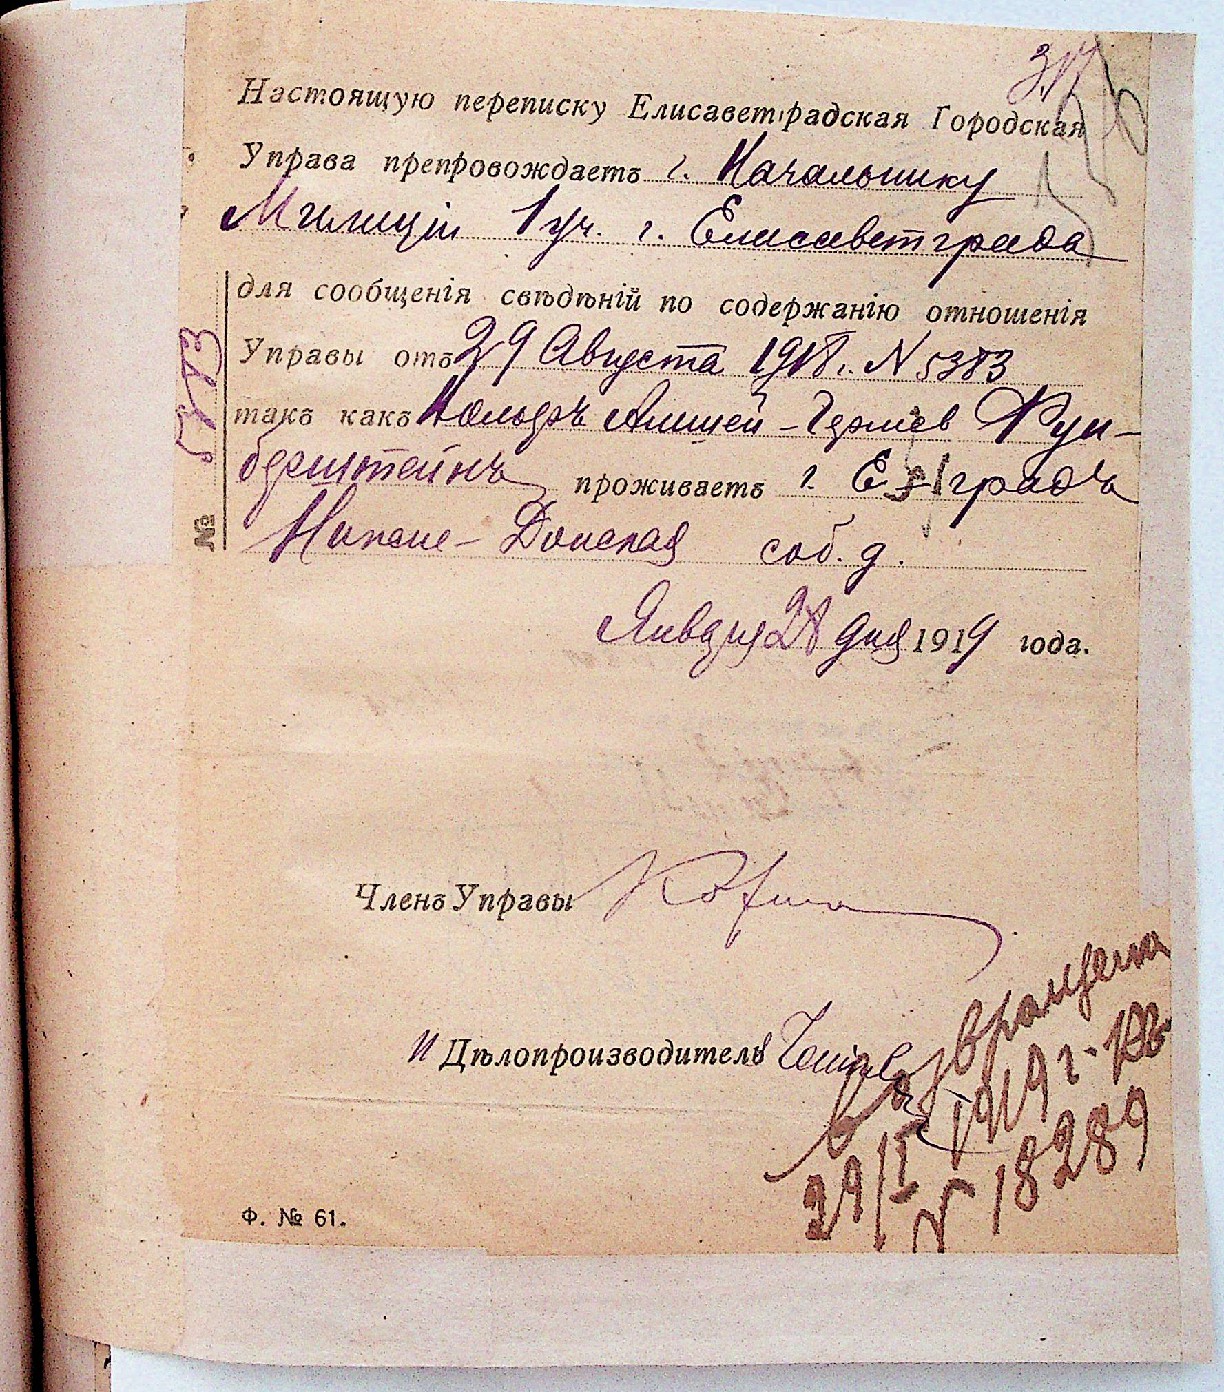 Настоящую переписку Елисаветградская Городская
Управа препровождаетъ г. Начальнику
Милиціи 1 уч. г. Елисаветграда
для сообщенія свѣдѣній по содержанію отношенія
Управы отъ 29 Августа 1918 г. N 5383
такъ какъ
проживаетъ г. Е-градъ
Нижне-Донская соб. д.
Января 28 дня 1919 года.
Членъ Управы
И Дѣлопроизводитель
Возвращена
29/I 1919 г.
N 18289
Ф. № 61.
№